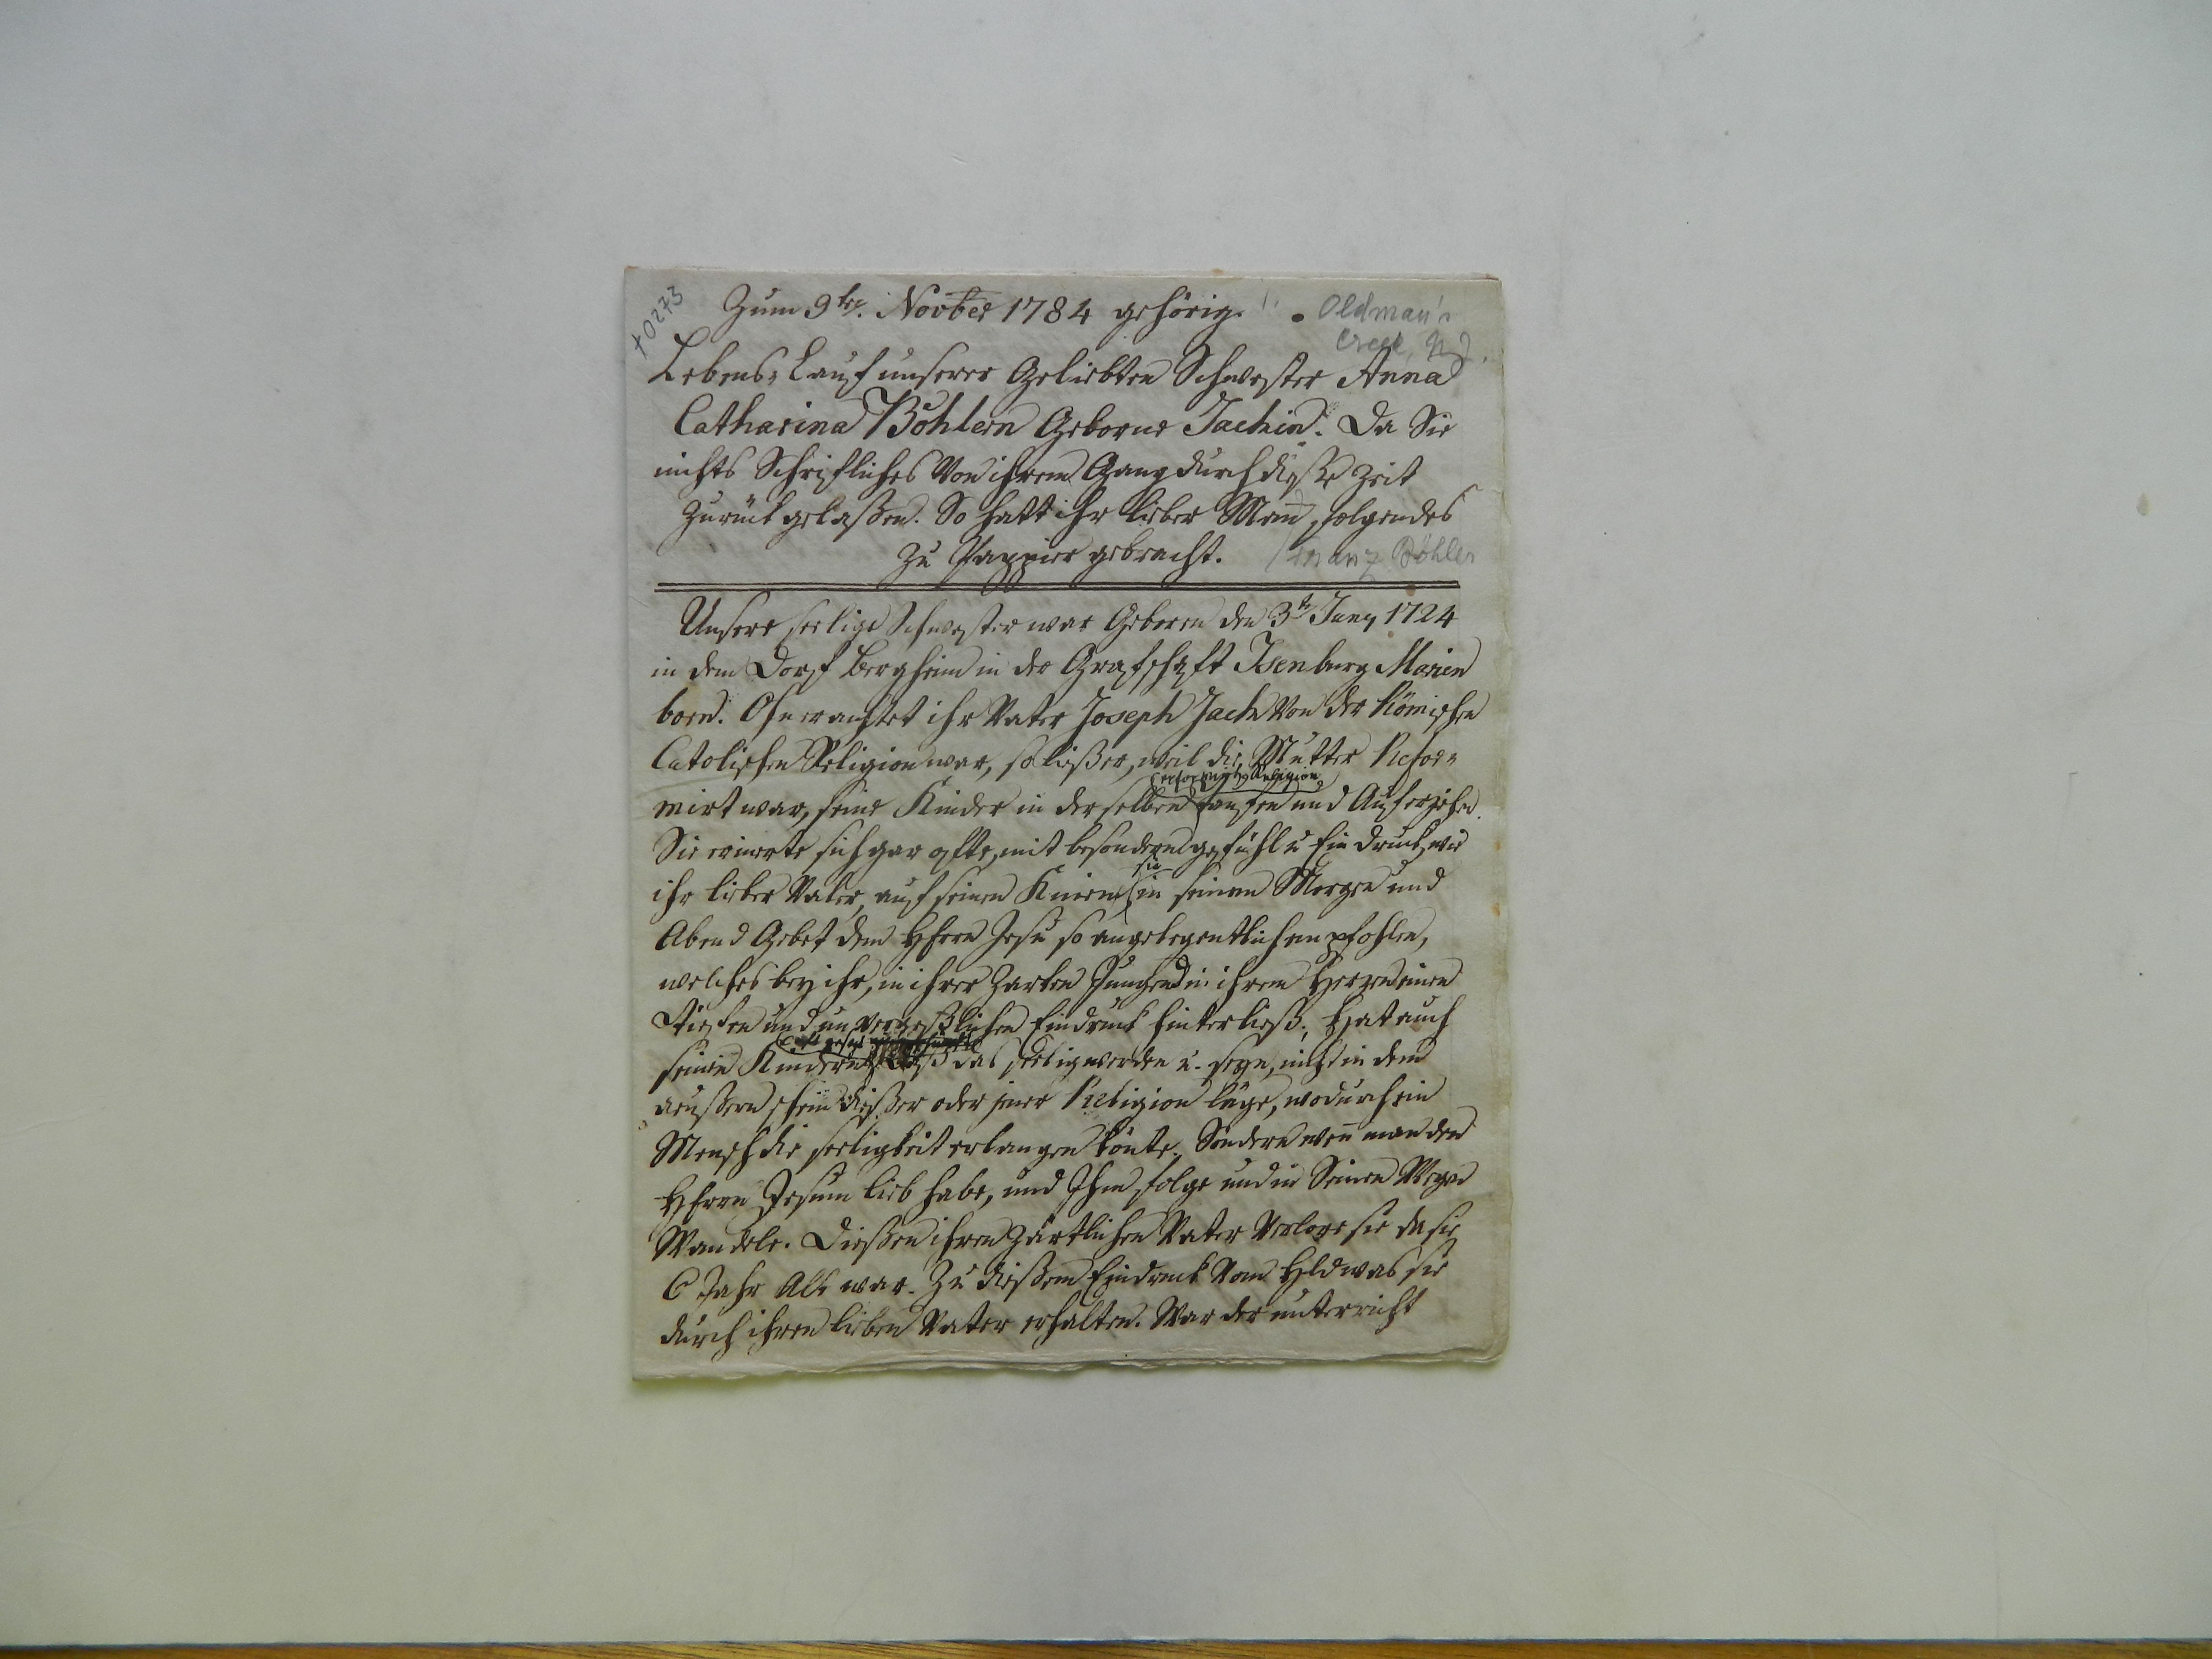 +0273
Zum 9ten. Novber 1784 gehörig. Oldman's
Creek, N.J.
Lebens-Lauf unserer Geliebten Schwester Anna
Catharina Böhlern Geborne Jachin. Da Sie
nichts Schrifliches Von ihrem Gang durch dieße Zeit
Zurück gelaßen. So hatt ihr lieber Man, folgendes
zu Pappier gebracht. Franz Böhler
Unsere seelige Schwester war Geboren den 3t Juny 1724
in dem Dorf Bergheim in der Grafschaft Isenburg Marien
born. Ohnerachtet ihr Vater Joseph Jach Von der Römischen
Catolischen Religion war, so ließ er, weil die Mutter Refor-
mirt war, seine Kinder in derselben taufen und Auferziehen.
Religion
Sie erinerte sich gar offte, mit besondern gefühl u Ein druck, wie
ihr lieber Vater, auf seinen Knien sie in seinem Morgen und
Abend Gebet dem HErrn Jesu so angelegentlich empfohlen,
welches bey ihr, in ihrer Zarten Jungend in ihrem Herzen einen
Tiefen und unvergeßlichen Eindruck hinterließ. Hat auch
seinen Kindern das seelig werden u. seyn, nicht in dem
äußern schein dießer oder jener Religion läge, wodurch ein
Mensch die seeligkeit erlangen könte. Sondern wen man den
HErrn Jesum lieb habe, und Ihm folge und in Seinen Wegen
Wandele. Dießen ihren Zärtlichen Vater Verlohr sie da sie
6 Jahr Alt war. Zu dießem Eindruck Vom Hld was sie
durch ihren lieben Vater erhalten. War der unterricht